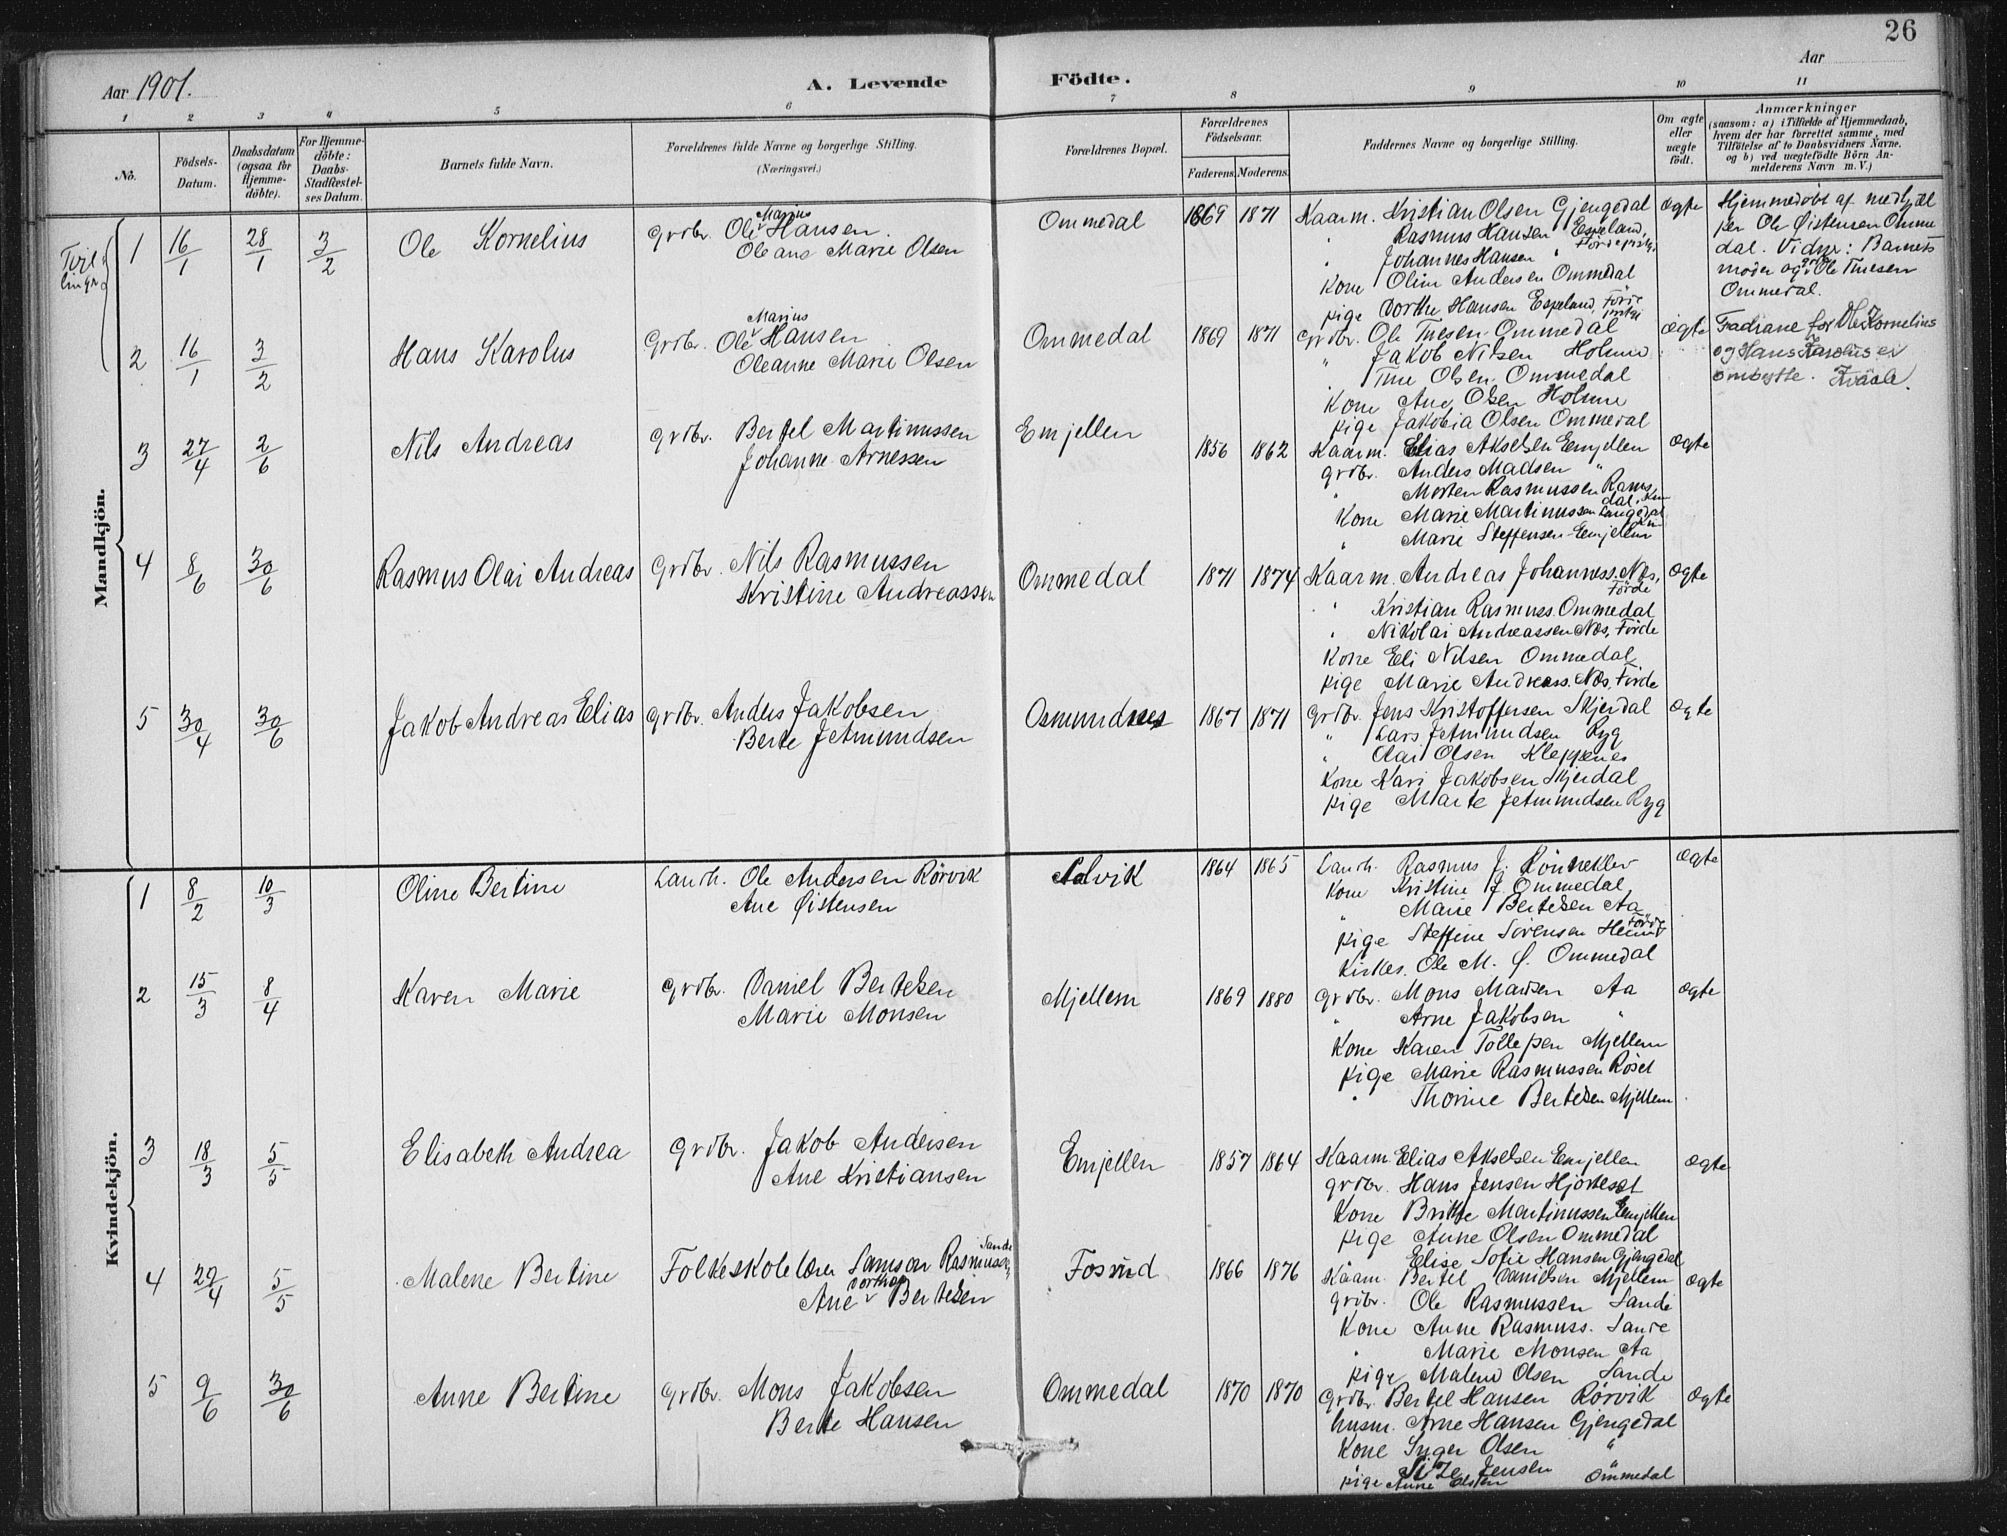 26
Aar 1901.
A. Levende Födte.
Aar
1 2 3 4 5 6 7 8 9 10 11
No.
Födsels-Datum.
Daabsdatum (ogsaa for Hjemme-döbte).
For Hjemme-döbte: Daabs-Stadfæstel-ses Datum.
Barnets fulde Navn.
Forældrenes fulde Navne og borgerlige Stilling.
(Næringsvei.)
Forældrenes Bopæl.
Forældrenes Födselsaar.
Faderens. Moderens.
Faddernes Navne og borgerlige Stilling.
Om ægte eller uægte födt.
Anmærkninger
(saasom: a) i Tilfælde af Hjemmedaab,
hvem der har forrettet samme, med
Tilföielse af to Daabsvidners Navne,
og b) ved uægtefödte Börn An-
melderens Navn m.V.)
Mandkjön.
1 16/1 28/1 3/2 Ole Kornelius
Grdbr. Ole Marius Hansen.
Oleane Marie Olsen
Ommedal 1869 1871
Kaarm. Kristian Olsen Gjengedal
" Rasmus Hansen Espeland, Förde prstgj.
" Johannes Hansen "
Kone Oline Andersen Ommedal
pige Dorthe Hansen Espeland, Förde prstgj
ægte
Hjemmedöbt af medhjæl
per Ole Øistensen Omme
dal. Vidner: Barnets
moder og grdbr. Ole Tuesen
Ommedal.
2 16/1 3/2 Hans Karolus
Grdbr. Ole Marius Hansen
Oleanne Marie Olsen
Ommedal 1869 1871
Grdbr. Ole Tuesen Ommedal
" Jakob Nilsen Holme
" Tue Olsen Ommedal
Kone Ane Olsen Holme
pige Jakobia Olsen Ommedal
ægte
Fadrane for Ole Kornelius
og Hans Karolus er
ombytte.
3 27/4 2/6 Nils Andreas
Grdbr. Bertel Martinussen
Johanne Arnessen
Emjellen 1856 1862
Kaarm. Elias Akselsen Emjellen
grdbr. Anders Madsen "
" Morten Rasmussen Rams
dal,
Kone Marie Martinussen
" Marie Steffensen Emjellen
ægte
4 8/6 30/6 Rasmus Olai Andreas
Grdbr. Nils Rasmussen
Kristine Andreassen
Ommedal 1871 1874
Kaarm. Andreas Johanness. Næs, Förde
" Kristian Rasmuss. Ommedal
" Nikolai Andreassen Næs, Förde
Kone Eli Nilsen Ommedal
pige Marie Andreass. Næs, Förde
ægte
5 30/4 30/6 Jakob Andreas Elias
Grdbr. Anders Jakobsen
Berte Jetmundsen
Osmundnes 1867 1871
Grdbr. Jens Kristoffersen Skjerdal
" Lars Jetmundsen Ryg
" Olai Olsen Kleppenes
Kone Kari Jakobsen Skjerdal
pige Marte Jetmundsen Ryg
ægte
Kvindekjön.
1 8/2 10/3 Oline Bertine
Landh. Ole Andersen Rørvik
Ane Øistensen
Aalvik 1864 1865
Landh. Rasmus J. Rönneklev
Kone Kristine J. Ommedal
" Marie Bertelsen Aa
pige Steffine Sørensen Förde
Kirkes. Ole M. Ø. Ommedal
ægte
2 15/3 8/4 Karen Marie
Grdbr. Daniel Bertelsen
Marie Monsen
Mjellem 1869 1880
Grdbr. Mons Madsen Aa
" Arne Jakobsen "
Kone Karen Tollefsen Mjellem
pige Marie Rasmussen Røset
" Thorine Bertelsen Mjellem
ægte
3 18/3 5/5 Elisabeth Andrea
Grdbr. Jakob Andersen
Ane Kristiansen
Emjellen 1857 1864
Kaarm Elias Akselsen Emjellen
grdbr. Hans Jensen Hjörteset
Kone Brithe Martinussen Emjellen
pige Anne Olsen Ommedal
Elise Sofie Hansen Gjengedal
ægte
4 29/4 5/5 Malene Bertine
Folkeskolelærer Samson Rasmussen Sande
Ane Dorthea Bertelsen
Fosund 1866 1876
Kaarm. Bertel Danielsen Mjellem
grdbr. Ole Rasmussen Sande
Kone Anne Rasmuss. Sande
" Marie Monsen Aa
pige Malene Olsen Sande
ægte
5 9/6 30/6 Anne Bertine
Grdbr. Mons Jakobsen
Berte Hansen
Ommedal 1870 1870
Grdbr. Bertel Hansen Rørvik
husm. Arne Hansen Gjengedal
Kone Inger Olsen "
" Jensen "
pige Anne Ommedal
ægte